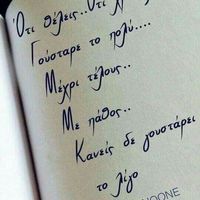 Ότι θέλεις..Ότι
Γούσταρε το πολύ....
Μέχρι τέλους..
Με πάθος..
Κανείς δε γουστάρει
το λίγο
NOONE